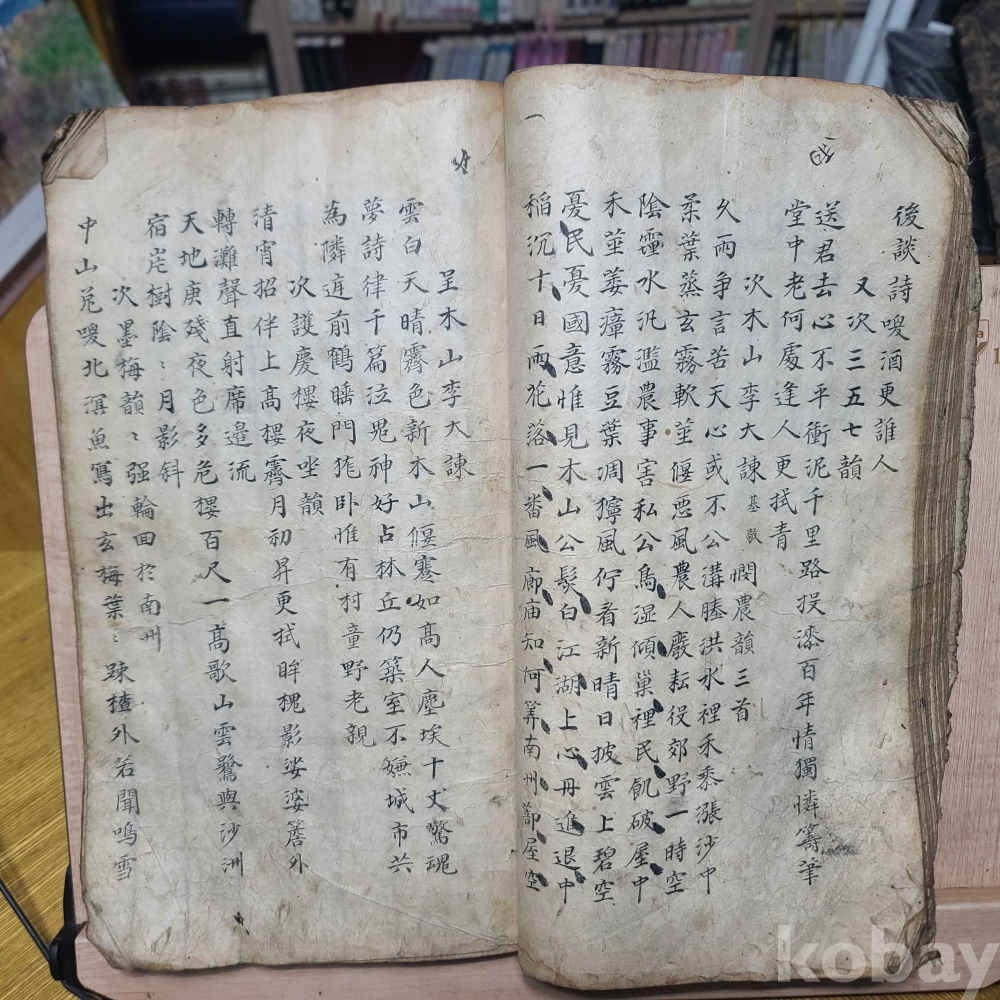 後談詩嗅酒更誰人
又次三五七韻
送君去心不平衝泥千里路投漆百年情獨憐籌筆
堂中老何處逢人更拭青
次木山李大諫基敬憫農韻三首
久雨爭言苦天心或不公溝塍洪水裡禾黍漲沙中
柔葉蒸玄霧軟莖偃惡風農人廢耘役郊野一時空
陰霾水汎濫農事害私公鳥湿傾巢裡民飢破屋中
禾莖萎瘴霧豆葉凋獰風佇看新晴日披雲上碧空
憂民憂國意惟見木山公髮白江湖上心丹進退中
稲沉十日雨花落一番風廊庙知何筭南州蔀屋空
呈木山李大諫
雲白天晴霽色新木山偃蹇如高人塵埃十丈驚魂
夢詩律千篇泣鬼神好占林丘仍築室不嫌城市共
為隣遅前鶴睡門㹠卧惟有村童野老親
次護慶樓夜坐韻
清宵招伴上高樓霽月初昇更拭眸槐影婆娑簷外
轉灘聲直射席邊流
天地庚殘夜色多危樓百尺一高歌山雲驚與沙洲
宿岸樹陰〻月影斜
次墨梅韻〻强輪囬於南州
中山兎嗅北溟魚寫出玄梅葉〻踈楂外若聞鳴雪
kobay